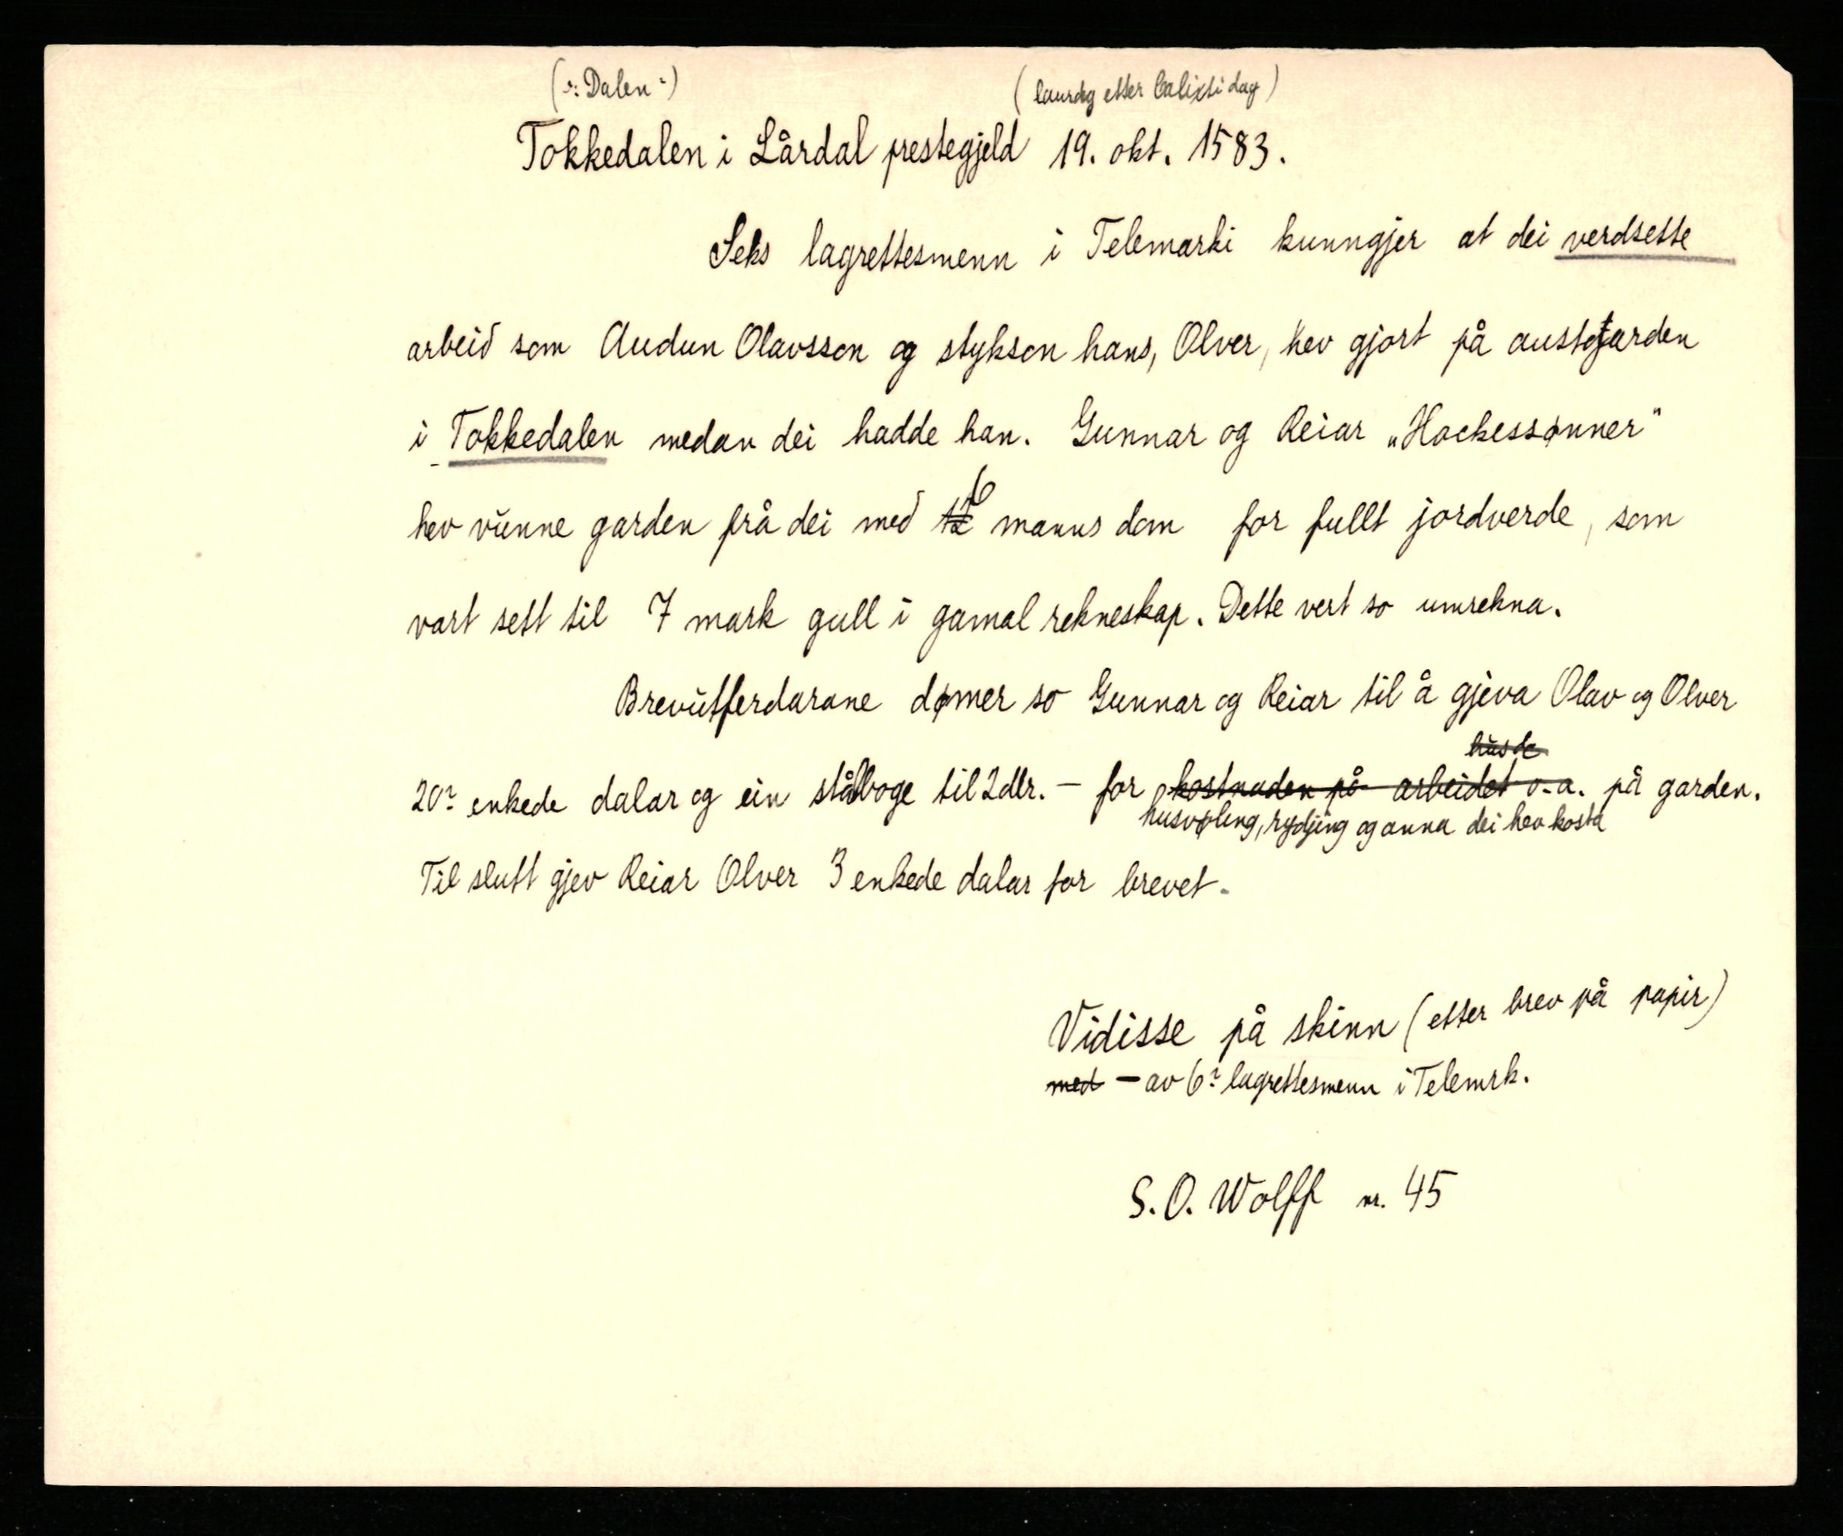 (ɔ: Dalen :) (laurdag etter Calixti dag)
Tokkedalen i Lårdal prestegjeld 19. okt. 1583.
Seks lagrettesmenn i Telemarki kunngjer at dei verdsette
arbeid som Audun Olavsson og stykson hans, Olver, hev gjort på austgarden
i Tokkedalen medan dei hadde han. Gunnar og Reiar „Hackessønner"
hev vunne garden frå dei med 6 manns dom for fullt jordverde, som
vart sett til 7 mark gull i gamal rekneskap. Dette vert so umrekna.
Brevutferdarane dømer so Gunnar og Reiar til å gjeva Olav og Olver
husde
20? enkede dalar og ein stålboge til 2 dlr. - for kostnaden på arbeidet o.a. på garden.
husvøling, rydjing og anna dei hev kosta
Til slutt gjev Reiar Olver 3 enkede dalar for brevet.
Vidisse på skinn (etter brev på papir)
med - av 6? lagrettesmenn i Telemrk.
S. O. Wolff nr. 45